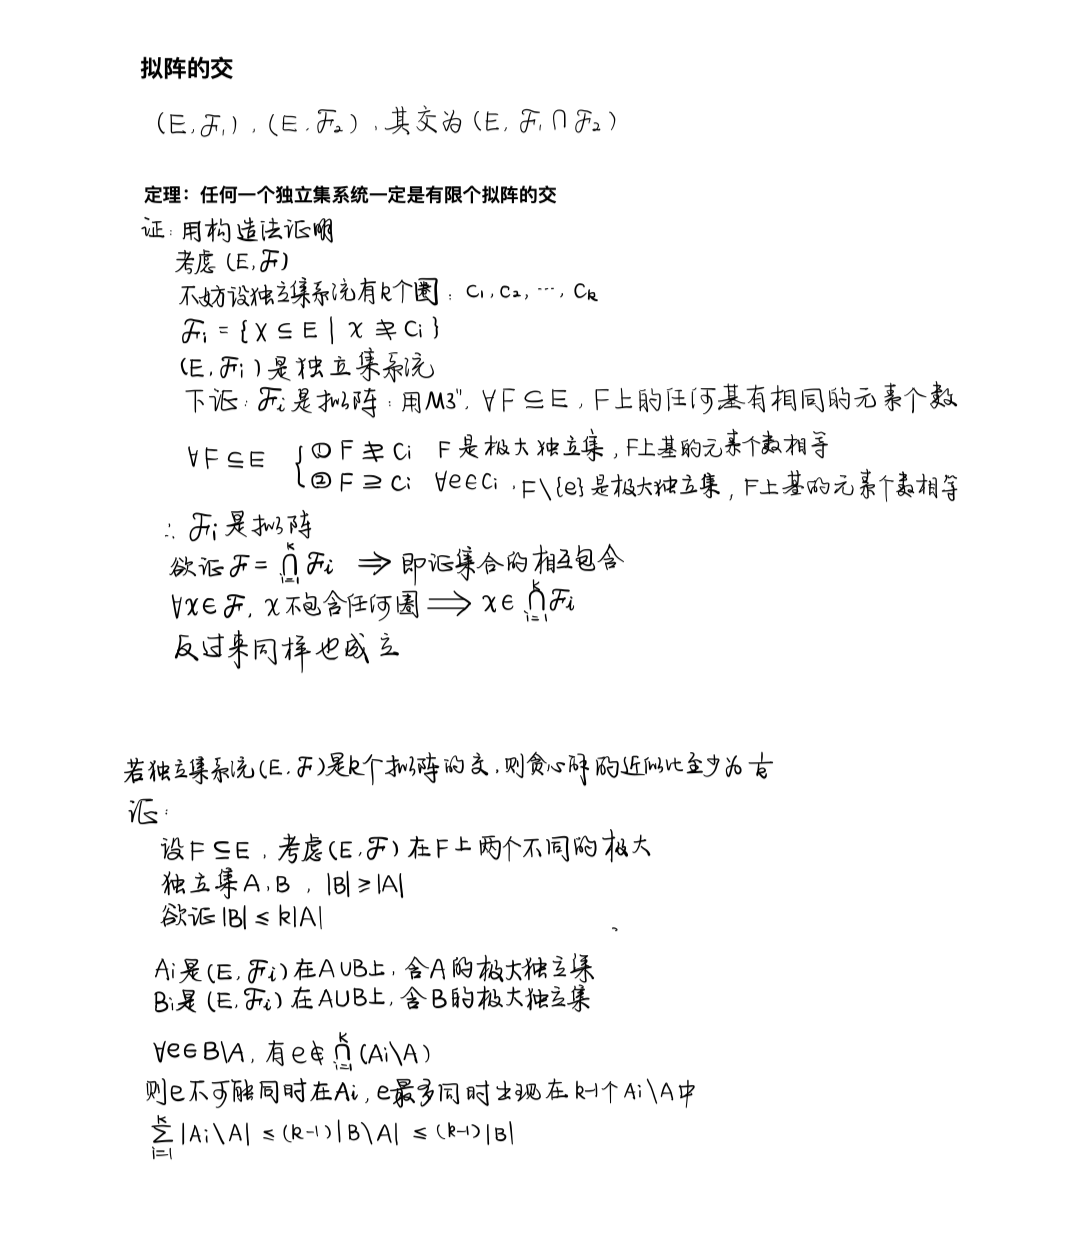 拟阵的交
(E, ℱ₁), (E, ℱ₂), 其交为 (E, ℱ₁ ∩ ℱ₂)
定理：任何一个独立集系统一定是有限个拟阵的交
证: 用构造法证明
考虑 (E, ℱ)
不妨设独立集系统有k个圈: C₁, C₂, ⋯, Cₖ
ℱᵢ = {X ⊆ E | X ⊉ Cᵢ}
(E, ℱᵢ) 是独立集系统
下证: ℱᵢ是拟阵: 用M3", ∀F⊆E, F上的任何基有相同的元素个数
∀F⊆E { ① F ⊉ Cᵢ F是极大独立集, F上基的元素个数相等
② F ⊇ Cᵢ ∀e∈Cᵢ, F\{e}是极大独立集, F上基的元素个数相等
∴ ℱᵢ是拟阵
欲证 ℱ = ⋂ᵢ₌₁ᵏ ℱᵢ ⟹ 即证集合的相互包含
∀X∈ℱ, X不包含任何圈 ⟹ X∈ ⋂ᵢ₌₁ᵏ ℱᵢ
反过来同样也成立
若独立集系统(E, ℱ)是k个拟阵的交, 则贪心解的近似比至少为 1/k
证:
设F⊆E, 考虑(E, ℱ)在F上两个不同的极大
独立集A, B, |B| ≥ |A|
欲证 |B| ≤ k|A|
Aᵢ是(E, ℱᵢ)在A∪B上, 含A的极大独立集
Bᵢ是(E, ℱᵢ)在A∪B上, 含B的极大独立集
∀e∈B\A, 有e∉ ⋂ᵢ₌₁ᵏ (Aᵢ\A)
则e不可能同时在Aᵢ, e最多同时出现在k-1个Aᵢ\A中
∑ᵢ₌₁ᵏ |Aᵢ\A| ≤ (k-1)|B\A| ≤ (k-1)|B|